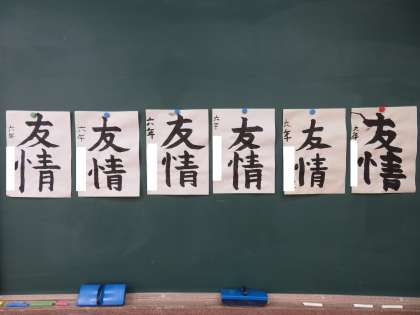 友情
六年
友情
六年
友情
六年
友情
六年
友情
六年
友情
六年